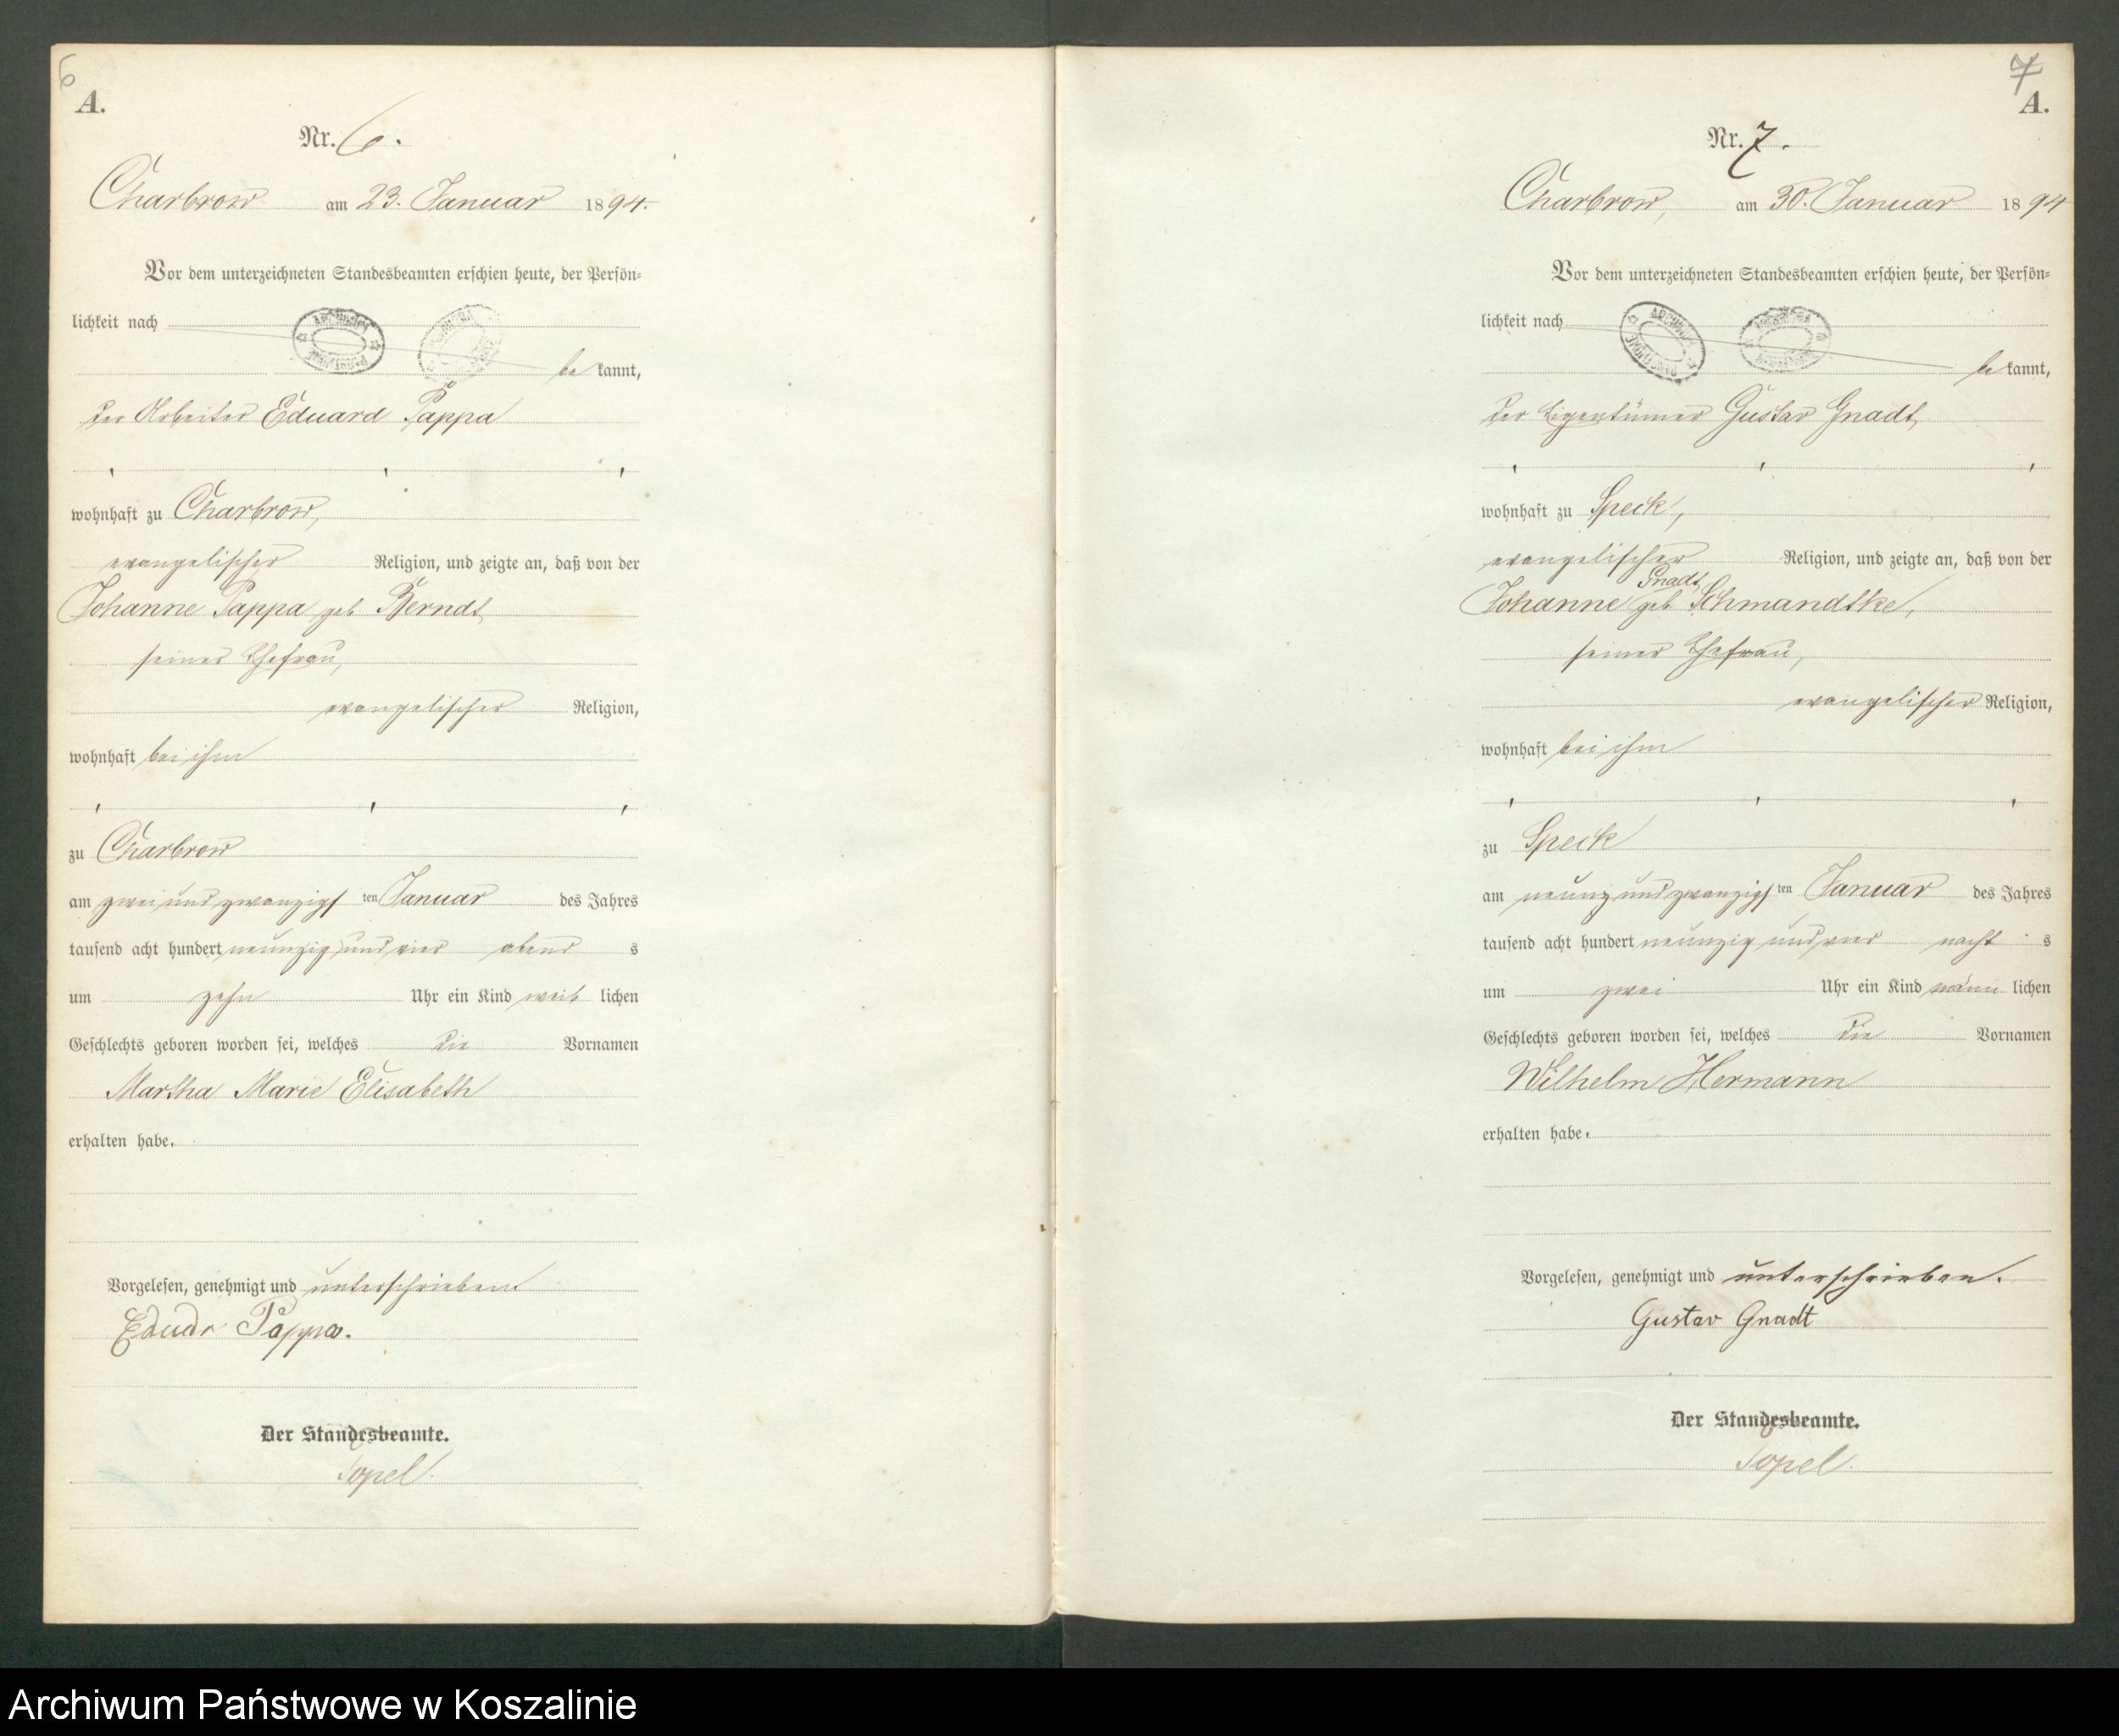 6
A.
Nr. 6.
Charbrow am 23. Januar 1894.
Vor dem unterzeichneten Standesbeamten erschien heute, der Persön-
lichkeit nach
be kannt,
der Arbeiter Eduard Pappa
wohnhaft zu Charbrow,
evangelischer Religion, und zeigte an, daß von der
Johanne Pappa geb. Berndt
seiner Ehefrau,
evangelischer Religion,
wohnhaft bei ihm
zu Charbrow
am zwei und zwanzigsten Januar des Jahres
tausend acht hundert neunzig und vier abend s
um zehn Uhr ein Kind weib lichen
Geschlechts geboren worden sei, welches die Vornamen
Martha Marie Elisabeth
erhalten habe.
Vorgelesen, genehmigt und unterschrieben
Eduar Pappa.
Der Standesbeamte.
Töpel.
7
A.
Nr. 7.
Charbrow, am 30. Januar 1894
Vor dem unterzeichneten Standesbeamten erschien heute, der Persön-
lichkeit nach
be kannt,
der Eigentümer Gustav Gnadt,
wohnhaft zu Speck,
evangelischer Religion, und zeigte an, daß von der
Johanne Gnadt geb. Schmandtke,
seiner Ehefrau,
evangelischer Religion,
wohnhaft bei ihm
zu Speck
am neun und zwanzigsten Januar des Jahres
tausend acht hundert neunzig und vier nacht s
um zwei Uhr ein Kind männ lichen
Geschlechts geboren worden sei, welches die Vornamen
Wilhelm Hermann
erhalten habe.
Vorgelesen, genehmigt und unterschrieben.
Gustav Gnadt
Der Standesbeamte.
Töpel.
Archiwum Państwowe w Koszalinie